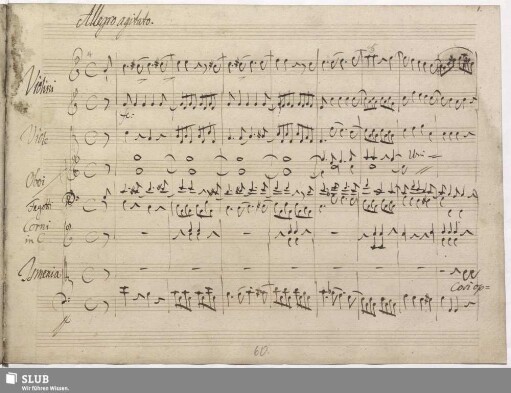 Allegro agitato.
Violini
Viole
Oboi
Fagotti
Corni
in C
Uni
60.
SLUB
Wir führen Wissen.